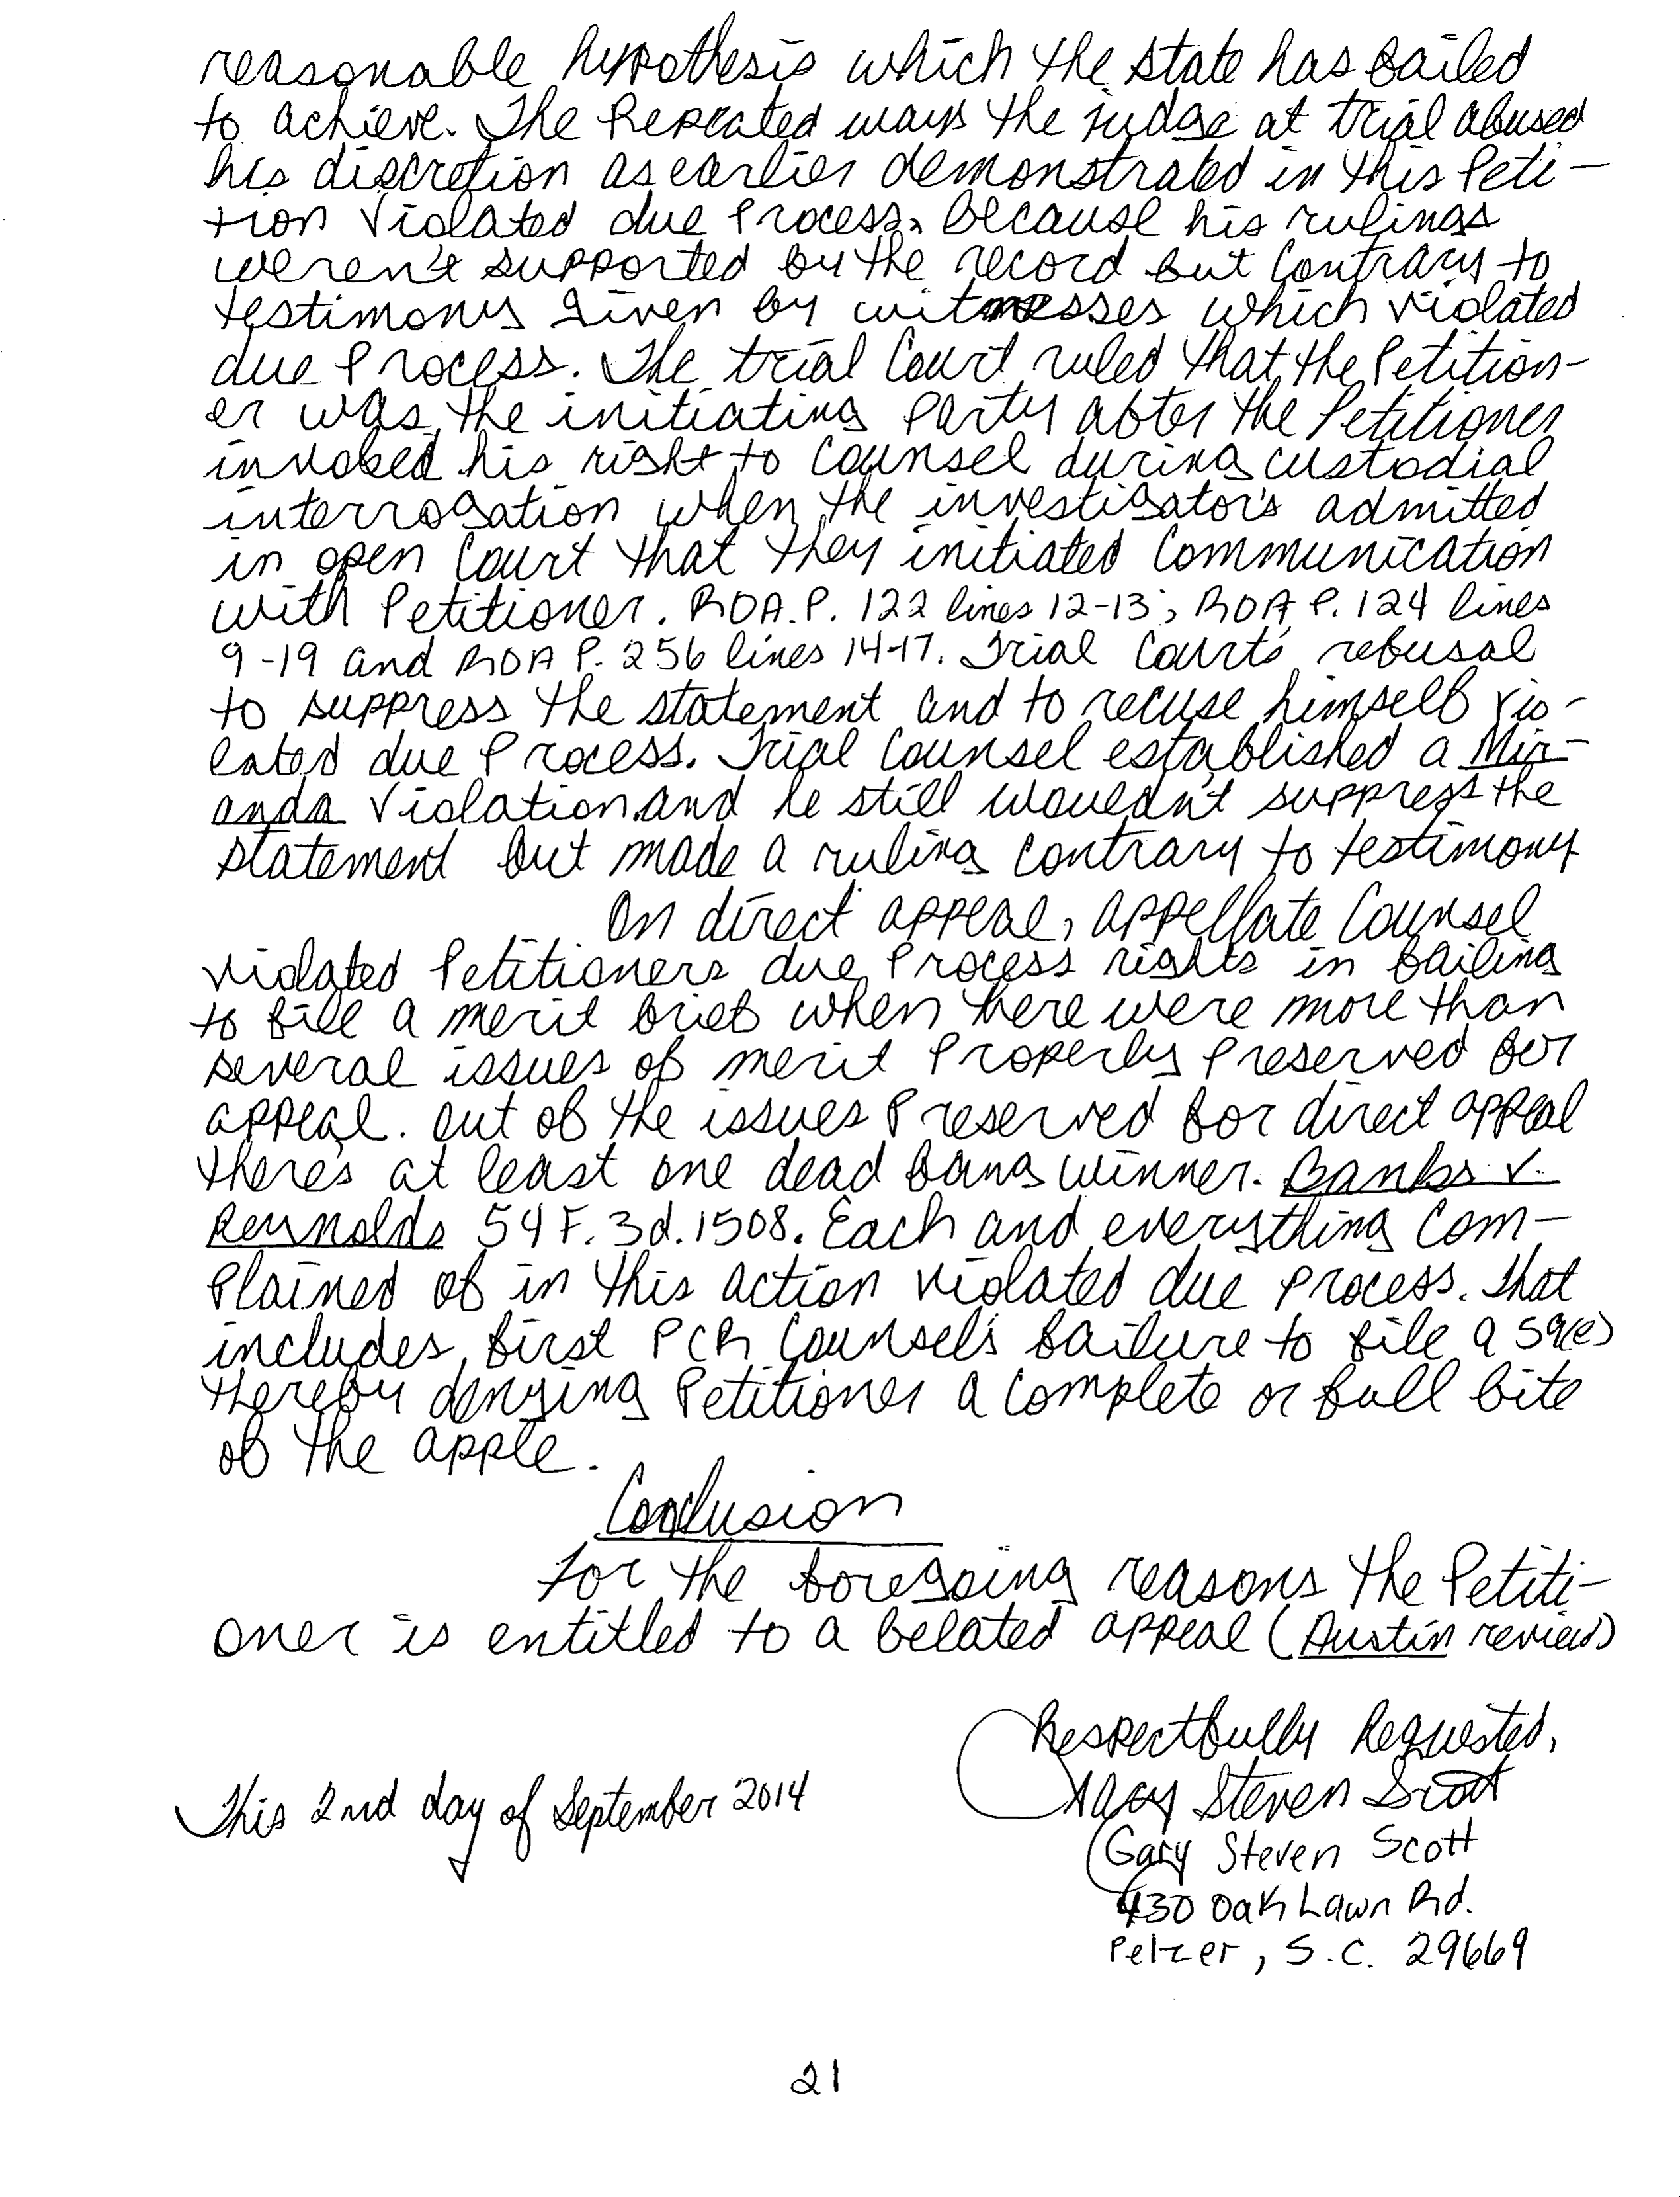 reasonable hypothesis which the state has failed
to achieve. The Repeated ways the judge at trial abused
his discretion as earlier demonstrated in this Peti-
tion violated due Process, because his rulings
weren't supported by the record but Contrary to
testimony given by witnesses which violated
due Process. The trial Court ruled that the Petition-
er was the initiating Party after the Petitioner
invoked his right to Counsel during custodial
interrogation when the investigator's admitted
in open Court that they initiated Communication
with Petitioner. ROA.P. 122 lines 12-13; ROA P. 124 lines
9-19 and ROA P. 256 lines 14-17. Trial Court's refusal
to suppress the statement and to recuse himself vio-
lated due Process. Trial Counsel established a Mir-
anda violation and he still wouldn't suppress the
statement but made a ruling contrary to testimony
On direct appeal, appellate Counsel
violated Petitioners due Process rights in failing
to file a merit brief when there were more than
several issues of merit Properly Preserved for
appeal. Out of the issues Preserved for direct appeal
there's at least one dead bang winner. Banks v.
Reynolds 54 F. 3d. 1508. Each and everything Com-
Plained of in this action violated due process. That
includes, first PCR Counsel's failure to file a 59(e)
thereby denying Petitioner a Complete or full bite
of the apple.
Conclusion
For the foregoing reasons the Petiti-
oner is entitled to a belated appeal (Austin review)
Respectfully Requested,
Gary Steven Scott
This 2nd day of September 2014
Gary Steven Scott
430 Oak Lawn Rd.
Pelzer, S.C. 29669
21